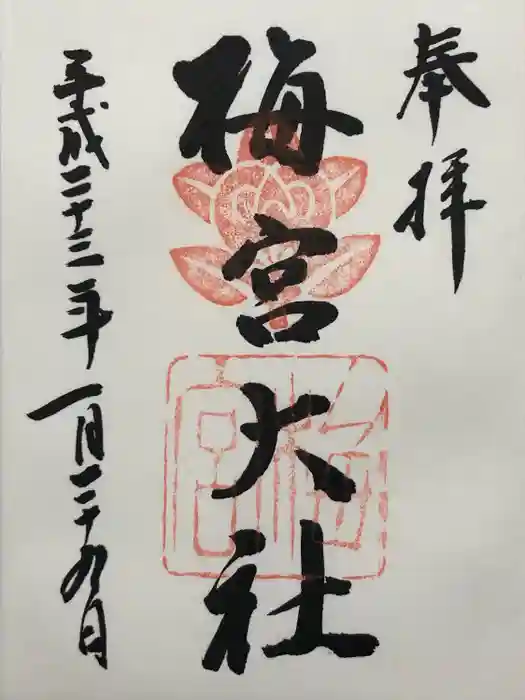 奉拝
梅宮大社
平成二十三年一月二十九日
梅宮